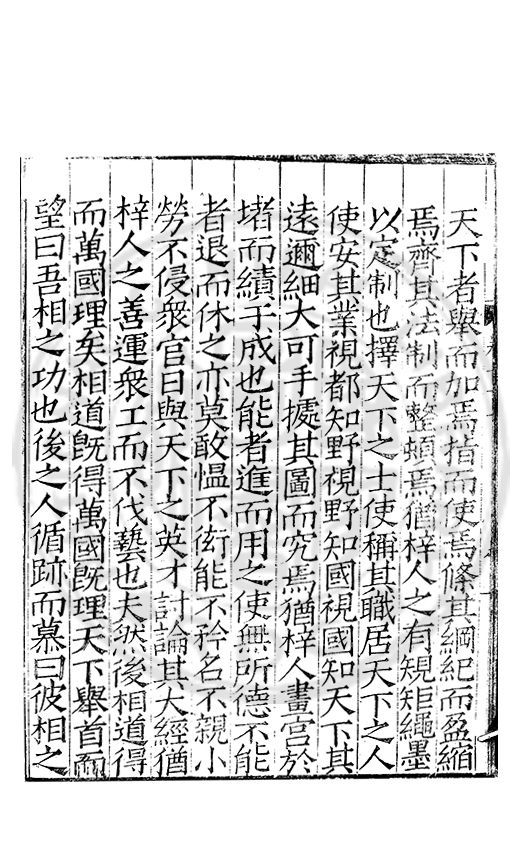 天下者舉而加焉指而使焉條其綱紀而盈縮
焉齊其法制而整頓焉猶梓人之有規矩繩墨
以定制也擇天下之士使稱其職居天下之人
使安其業視都知野視野知國視國知天下其
遠邇細大可手據其圖而究焉猶梓人畫宫於
堵而績于成也能者進而用之使無所德不能
者退而休之亦莫敢愠不衒能不矜名不親小
勞不侵衆官日與天下之英才討論其大經猶
梓人之善運衆工而不伐藝也夫然後相道得
而萬國理矣相道旣得萬國旣理天下舉首而
望曰吾相之功也後之人循跡而慕曰彼相之